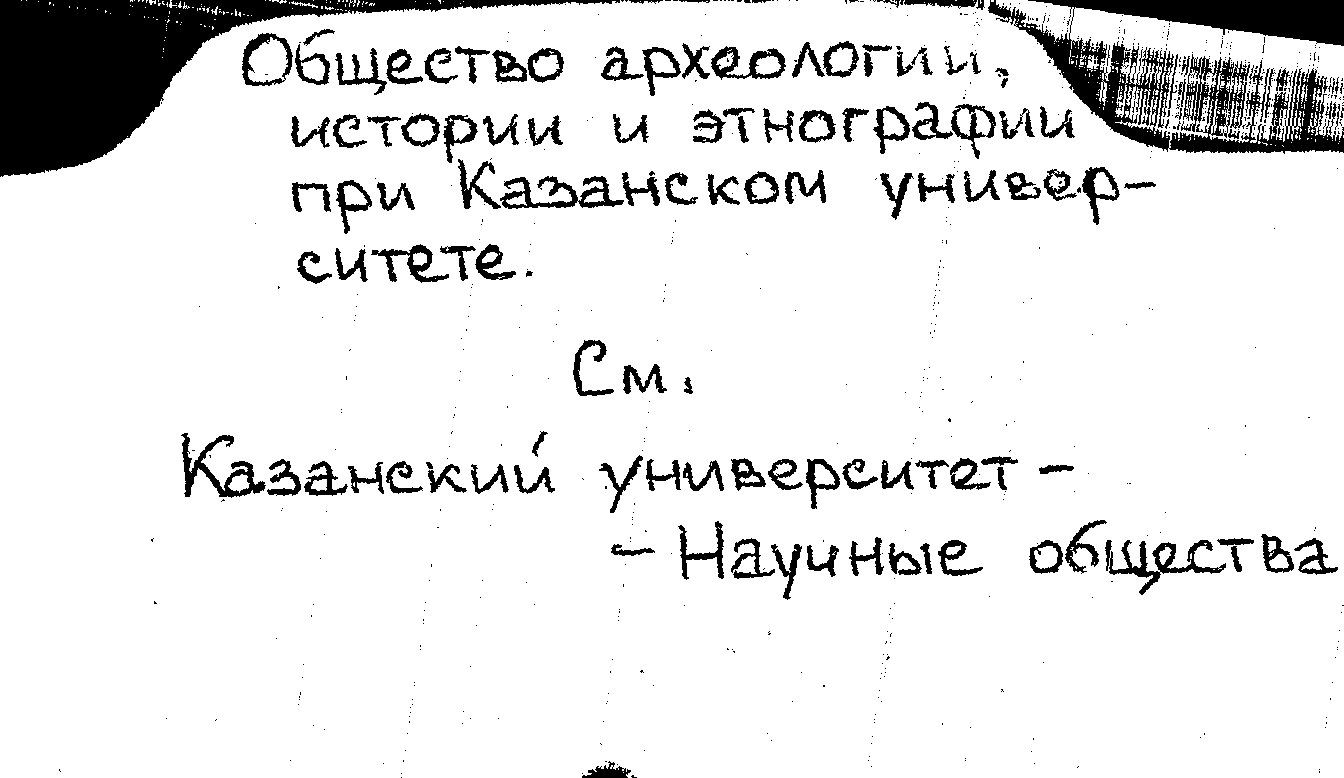 Общество археологии,
истории и этнографии
при Казанском универ-
ситете.
См.
Казанский университет -
- Научные общества